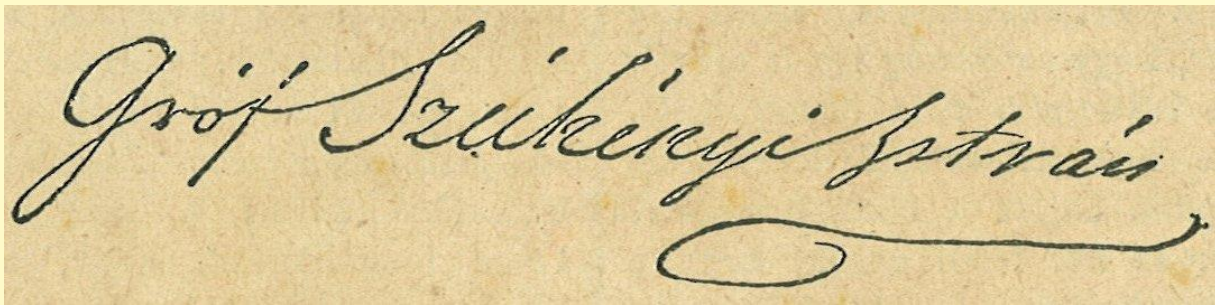 Gróf Széchényi István